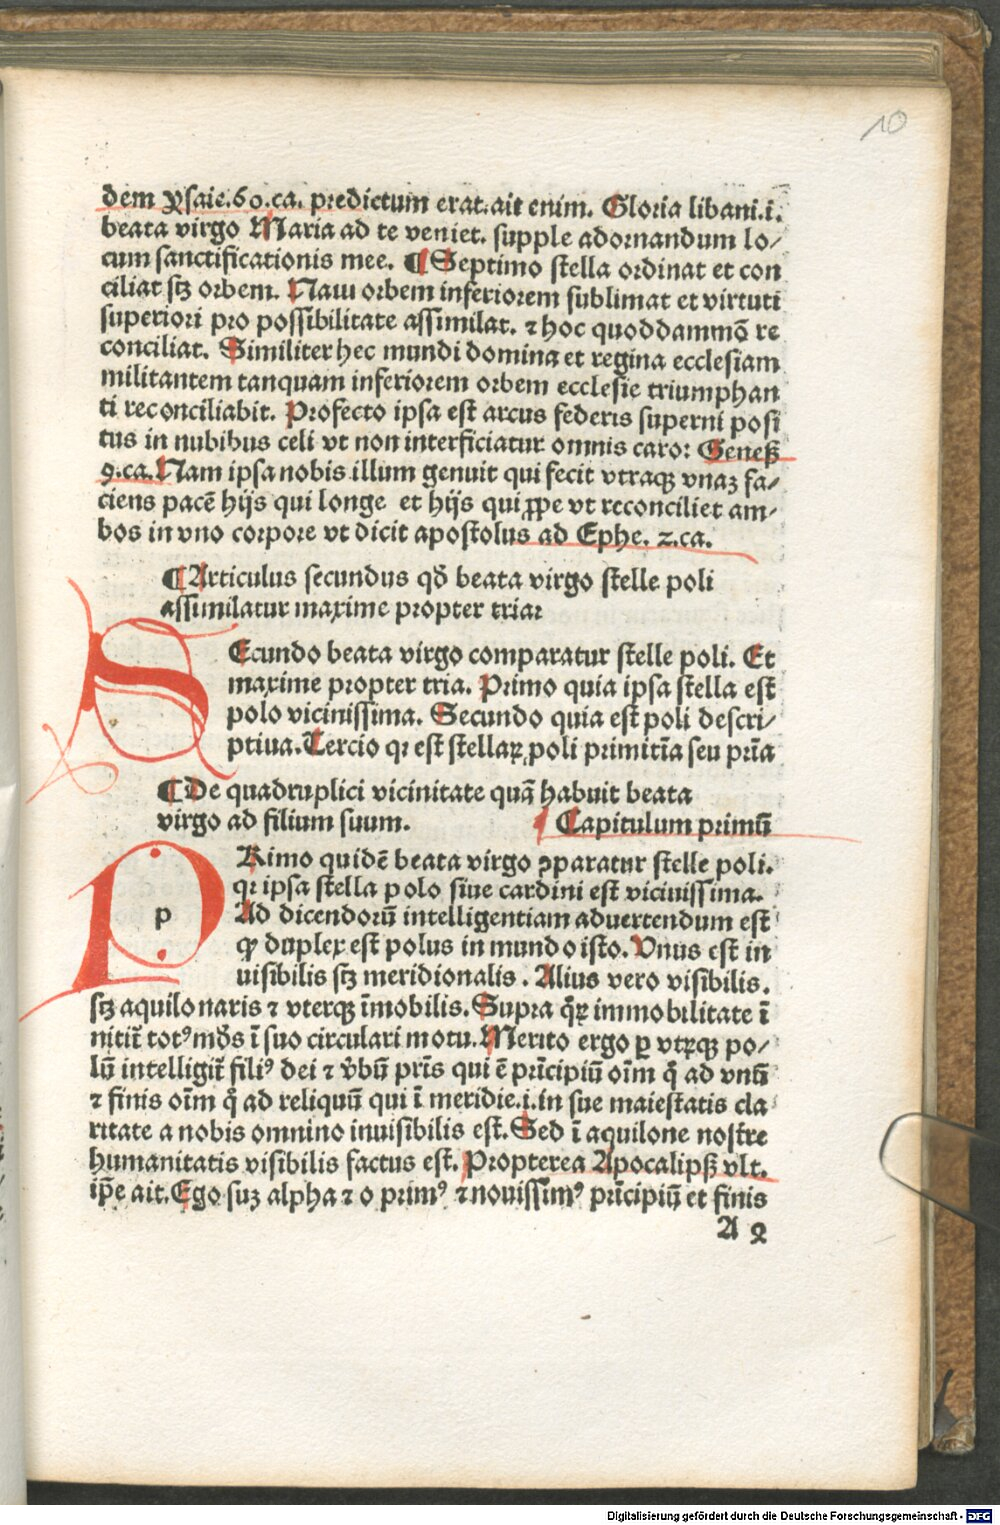 10
dem Ysaie.60.ca. predictum erat.ait enim. Gloria libani.i.
beata virgo Maria ad te veniet. supple adornandum lo⸗
cum sanctificationis mee. ¶ Septimo stella ordinat et con
ciliat scꝫ orbem. Nam orbem inferiorem sublimat et virtuti
superiori pro possibilitate assimilat. ⁊ hoc quoddammō re
conciliat. Similiter hec mundi domina et regina ecclesiam
militantem tanquam inferiorem orbem ecclesie triumphan
ti reconciliabit. Profecto ipsa est arcus federis superni posi
tus in nubibus celi vt non interficiatur omnis caro: Geneẞ
9.ca. Nam ipsa nobis illum genuit qui fecit vtraqꝫ vnaꝫ fa⸗
ciens pacē hijs qui longe et hijs qui ꝓpe vt reconciliet am⸗
bos in vno corpore vt dicit apostolus ad Ephe. 2.ca.
¶ Articulus secundus qđ beata virgo stelle poli
assimilatur maxime propter tria:
SEcundo beata virgo comparatur stelle poli. Et
maxime propter tria. Primo quia ipsa stella est
polo vicinissima. Secundo quia est poli descri⸗
ptiua. Tercio qꝛ est stellaꝝ poli primitīa seu prīa
¶ De quadruplici vicinitate quā habuit beata
virgo ad filium suum. Capitulum primū
p
PRimo quidē beata virgo ꝯparatur stelle poli.
qꝛ ipsa stella polo siue cardini est vicinissima.
Ad dicendorū intelligentiam aduertendum est
ꝙ duplex est polus in mundo isto. Vnus est in
uisibilis scꝫ meridionalis. Alius vero visibilis.
scꝫ aquilonaris ⁊ vterqꝫ īmobilis. Supra qꝝ immobilitate ī
nitit̄ totꝰ mūdꝰ ī suo circulari motu. Merito ergo ꝑ vtrūqꝫ po⸗
lū intelligit̄ filiꝰ dei ⁊ v̄bū pr̄is qui ē prīcipiū oīm q̄ ad vnū
⁊ finis oīm q̄ ad reliquū qui ī meridie.i.in sue maiestatis cla
ritate a nobis omnino inuisibilis est. Sed ī aquilone nostre
humanitatis visibilis factus est. Propterea Apocalipẞ vlt.
ip̄e ait. Ego suꝫ alpha ⁊ o primꝰ ⁊ nouissimꝰ prīcipiū et finis
A 2
Digitalisierung gefördert durch die Deutsche Forschungsgemeinschaft - DFG